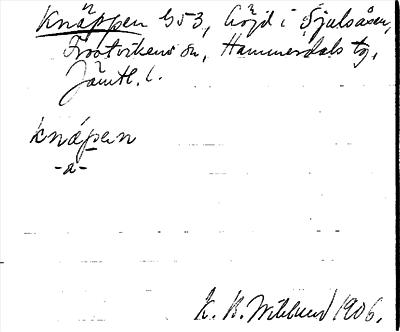 Knäppen G53, höjd i Sjulsåsen,
Frostvikens sn, Hammerdals tg,
Jämtl. l.
knápen
-a-
K. B. Wiklund 1906.